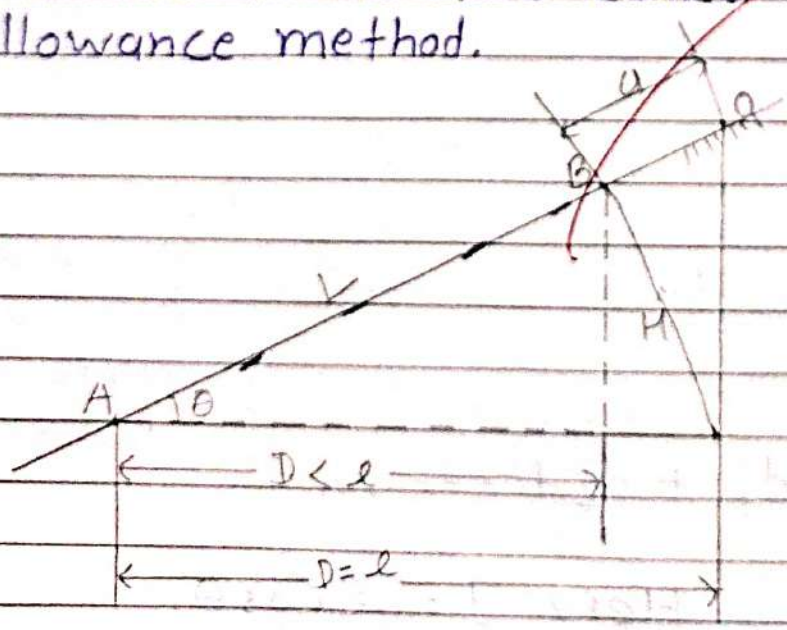 llowance method.
B
A
θ
H
D < l
D = l